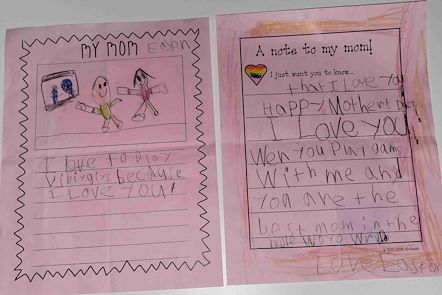 MY MOM Easpn
I love to play
Vibirgirs because
I LOVE YOU!
A note to my mom!
I just want you to know...
that I Love you
Happy Mothers Day
I Love you
Wen you Play gams
With me and
you are the
best mom in the
hole Worp Wrlb
Love Easton